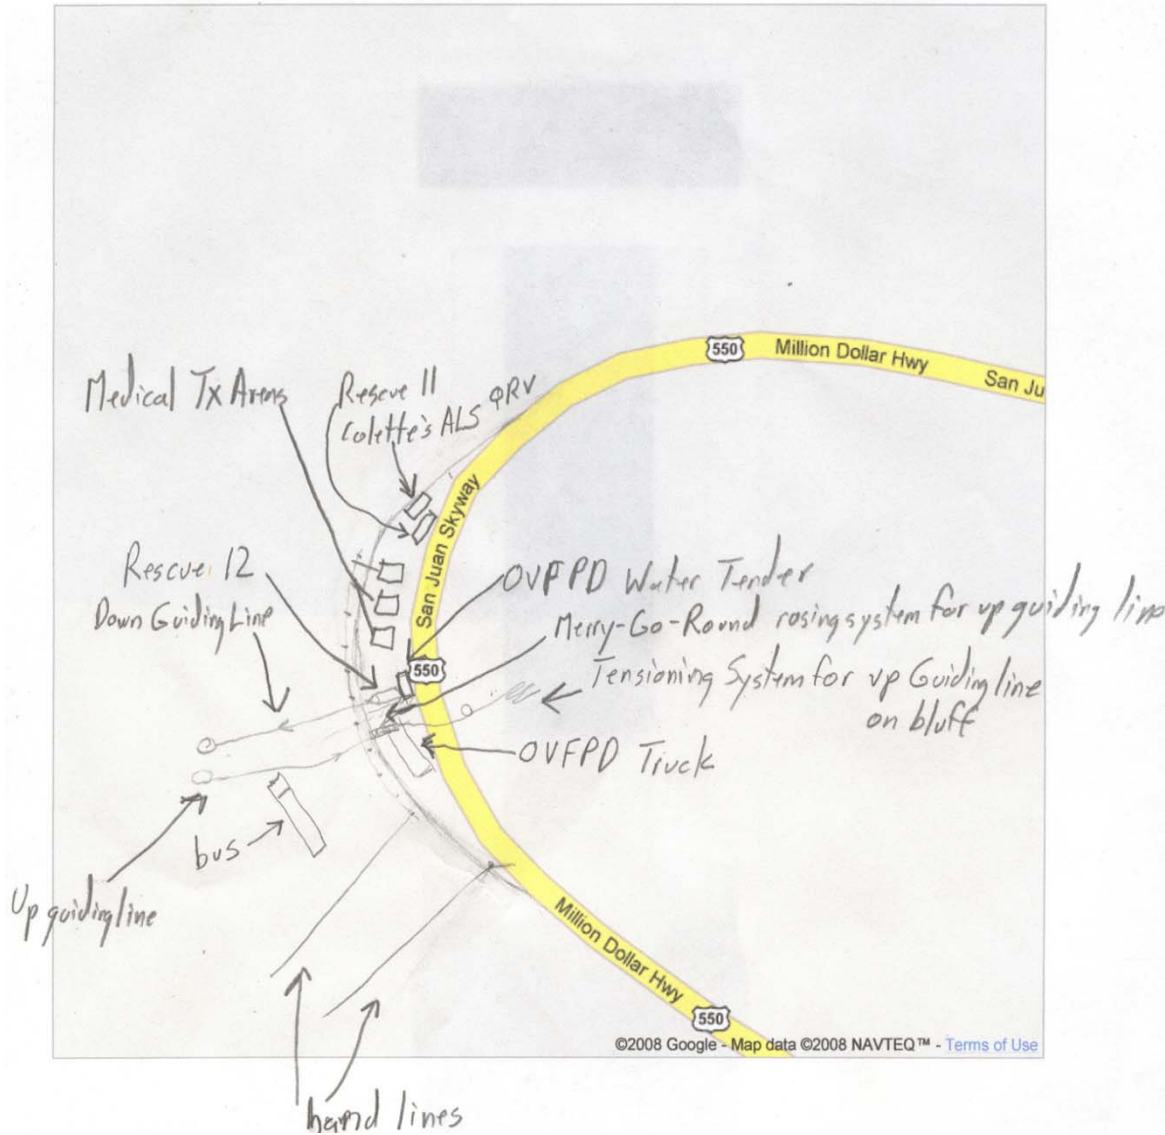 550
Million Dollar Hwy
San Ju
Medical Tx Areas
Rescue 11
Colette's ALS QRV
San Juan Skyway
Rescue 12
OVFPD Water Tender
Down Guiding Line
Merry-Go-Round rasing system for up guiding line
550
Tensioning System for up Guiding line
on bluff
OVFPD Truck
bus
Up guiding line
Million Dollar Hwy
550
©2008 Google - Map data ©2008 NAVTEQ™ - Terms of Use
hand lines